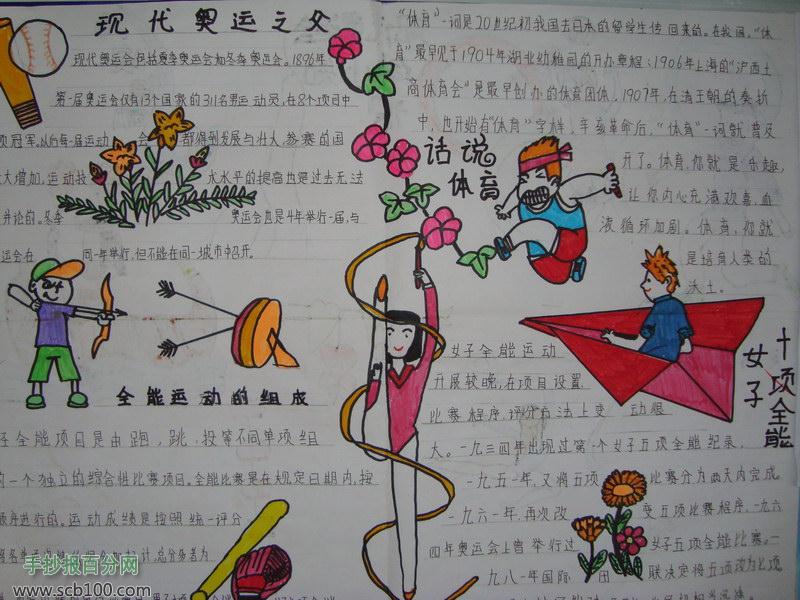 现代奥运之父
现代奥运会包括夏季奥运会和冬季奥运会。1896年
第一届奥运会仅有13个国家的311名男运动员,在8个项目中
项冠军。从白每一届运动 都得到发展与壮大,参赛的国
大增加,运动技 大水平的提高也是过去无法
并论的。冬季 奥运会真是4年举行一届,与
运会在 同一年举行,但不能在同一城市中召开。
全能运动的组成
全能项目是由跑,跳,投等不同单项组
的一个独立的综合性比赛项目。全能比赛是在规定日期内,按
顺序进行的。运动成绩是按照统一评分
计,总分多者为
“体育”一词是20世纪初我国去日本的留学生传回来的。在我国,“体
育”最早见于1904年湖北幼稚园的开办章程;1906年上海的“沪西土
商体育会”是最早创办的体育团体,1907年,在清王朝的奏折
中,也开始有“体育”字样,辛亥革命后,“体育”一词就普及
开了。体育,你就是乐趣,
让你内心充满欢喜,血
液循环加剧。体育,你就
是培育人类的
沃土。
话说
体育
女子
十项全能
女子全能运动
开展较晚,在项目设置
比赛程序,评分方法上变动很
大。一九三四年出现过第一个女子五项全能纪录,
一九五一年,又将五项比赛分为两天内完成。
一九六一年,再次改变五项比赛程序,一九六
四年奥运会上曾举行过女子五项全能比赛。一
九八一年国际田联决定将五项改为七项
手抄报百分网
www.scb100.com